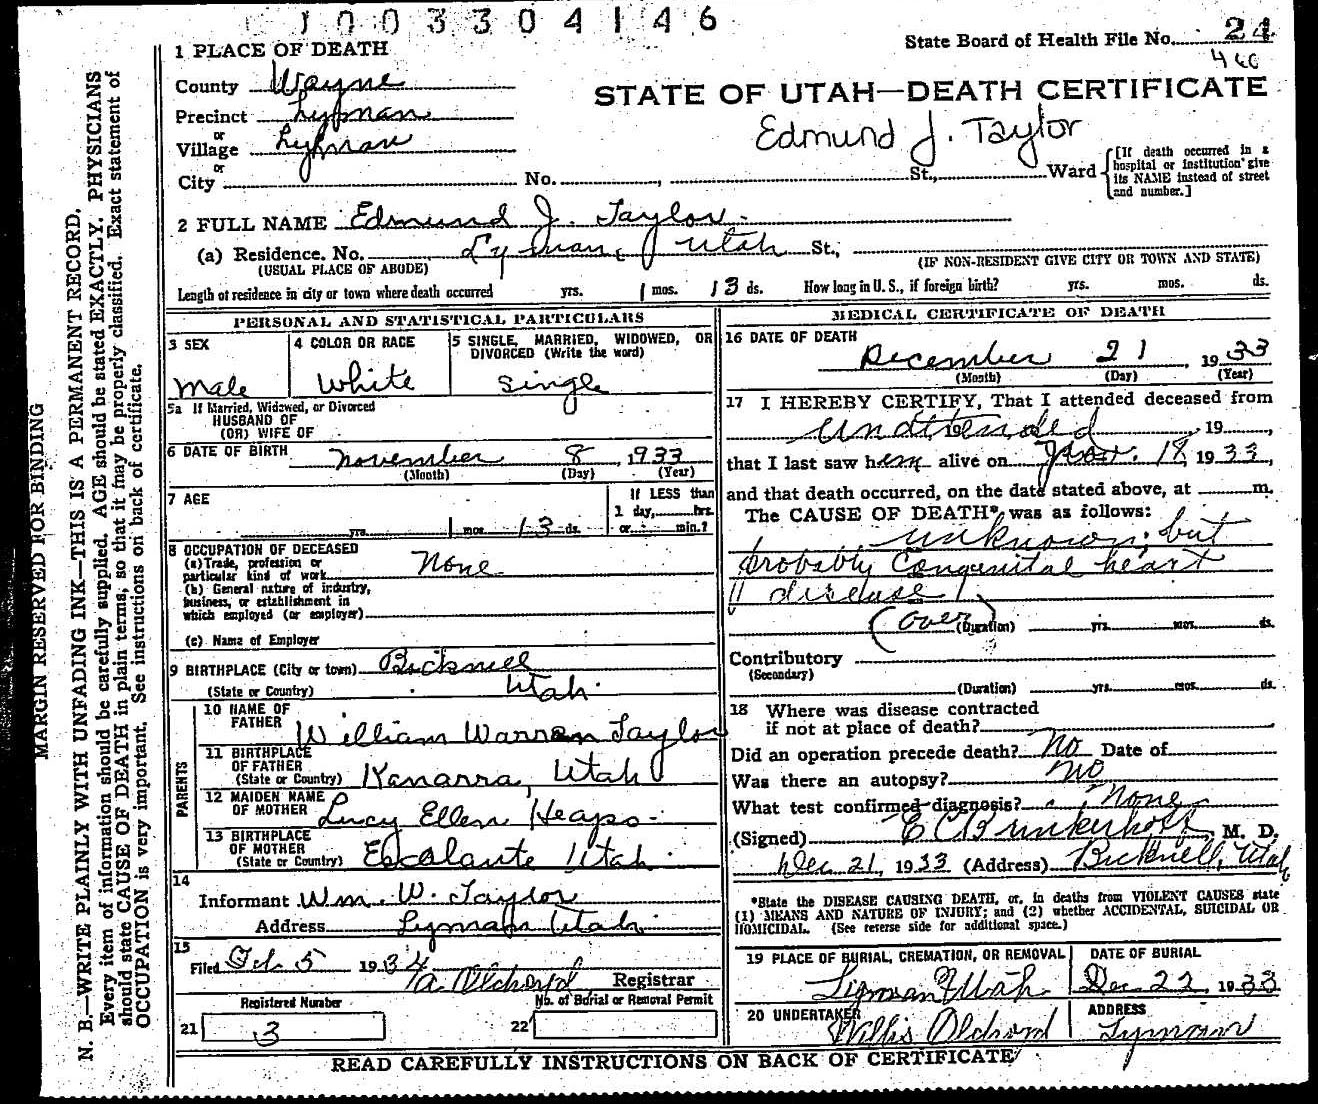 1003304146
State Board of Health File No. 24
460
1 PLACE OF DEATH
County Wayne
STATE OF UTAH—DEATH CERTIFICATE
Precinct Lyman
Edmund J. Taylor
or
Village Lyman
or
City No. , St., Ward
[If death occurred in a hospital or institution give its NAME instead of street and number.]
2 FULL NAME Edmund J. Taylor
(a) Residence. No. Lyman, Utah St.,
(USUAL PLACE OF ABODE) (IF NON-RESIDENT GIVE CITY OR TOWN AND STATE)
Length of residence in city or town where death occurred yrs. 1 mos. 13 ds. How long in U. S., if foreign birth? yrs. mos. ds.
PERSONAL AND STATISTICAL PARTICULARS
3 SEX
Male
4 COLOR OR RACE
White
5 SINGLE, MARRIED, WIDOWED, OR
DIVORCED (Write the word)
Single
5a If Married, Widowed, or Divorced
HUSBAND OF
(OR) WIFE OF
6 DATE OF BIRTH November 8, 1933
(Month) (Day) (Year)
7 AGE
yrs. 1 mos. 13 ds.
If LESS than
1 day, hrs.
or min.?
8 OCCUPATION OF DECEASED
(a) Trade, profession or
particular kind of work None
(b) General nature of industry,
business, or establishment in
which employed (or employer)
(c) Name of Employer
9 BIRTHPLACE (City or town) Bicknell
(State or Country) Utah.
PARENTS
10 NAME OF
FATHER William Warren Taylor
11 BIRTHPLACE
OF FATHER
(State or Country) Kanarra, Utah
12 MAIDEN NAME
OF MOTHER Lucy Ellen Heaps
13 BIRTHPLACE
OF MOTHER
(State or Country) Escalante Utah
14
Informant Wm. W. Taylor
Address Lyman Utah.
15
Filed Feb 5 1934
Registrar
Registered Number
No. of Burial or Removal Permit
21 3
22
MEDICAL CERTIFICATE OF DEATH
16 DATE OF DEATH
December 21, 1933
(Month) (Day) (Year)
17 I HEREBY CERTIFY, That I attended deceased from
unattended, 19 ,
that I last saw him alive on Nov. 18, 1933,
and that death occurred, on the date stated above, at m.
The CAUSE OF DEATH* was as follows:
unknown; but
probably Congenital heart
disease
(over)
(Duration) yrs. mos. ds.
Contributory
(Secondary)
(Duration) yrs. mos. ds.
18 Where was disease contracted
if not at place of death?
Did an operation precede death? No Date of
Was there an autopsy? no
What test confirmed diagnosis? None
(Signed) E C Brinkerhoff, M. D.
Dec 21, 1933 (Address) Bicknell, Utah
*State the DISEASE CAUSING DEATH, or, in deaths from VIOLENT CAUSES state
(1) MEANS AND NATURE OF INJURY; and (2) whether ACCIDENTAL, SUICIDAL OR
HOMICIDAL. (See reverse side for additional space.)
19 PLACE OF BURIAL, CREMATION, OR REMOVAL
Lyman Utah
DATE OF BURIAL
Dec 22, 1933
20 UNDERTAKER
Willis Oldroyd
ADDRESS
Lyman
READ CAREFULLY INSTRUCTIONS ON BACK OF CERTIFICATE
MARGIN RESERVED FOR BINDING
N. B.—WRITE PLAINLY WITH UNFADING INK—THIS IS A PERMANENT RECORD.
Every item of information should be carefully supplied. AGE should be stated EXACTLY. PHYSICIANS
should state CAUSE OF DEATH in plain terms, so that it may be properly classified. Exact statement of
OCCUPATION is very important. See instructions on back of certificate.